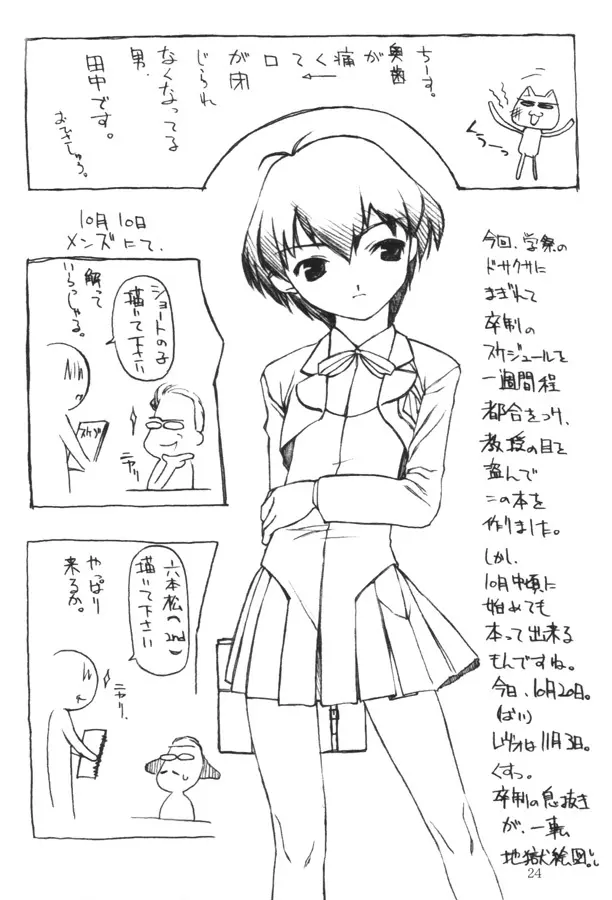 ちーす。
奥歯
が
痛
く
て
口
が閉
じられ
なくなってる
男、
田中です。
おひさしゅう。
くぅーっ
10月10日
メンズにて、
ショートの子
描いて下さい
解って
いらっしゃる。
スケブ
ニヤリ
六本松(2nd)
描いて下さい
やっぱり
来るか。
ニヤリ。
今回、学祭の
ドサクサに
まぎれて
卒制の
スケジュールを
一週間程
都合をつけ、
教授の目を
盗んで
この本を
作りました。
しかし、
10月中頃に
始めても
本って出来る
もんですね。
今日、10月20日。
(ばい)
レヴォは11月3日。
くすっ。
卒制の息抜き
が、一転
地獄絵図。
24